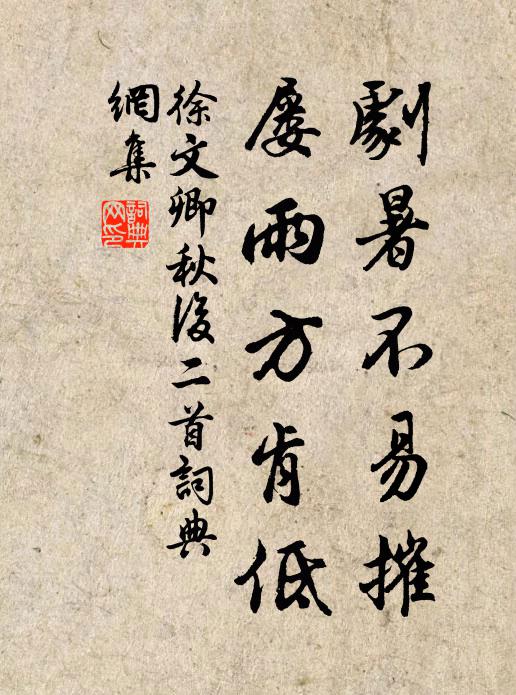 劇暑不易摧
屡雨方肯低
徐文卿秋後二首詞典
網集
詞典
网印